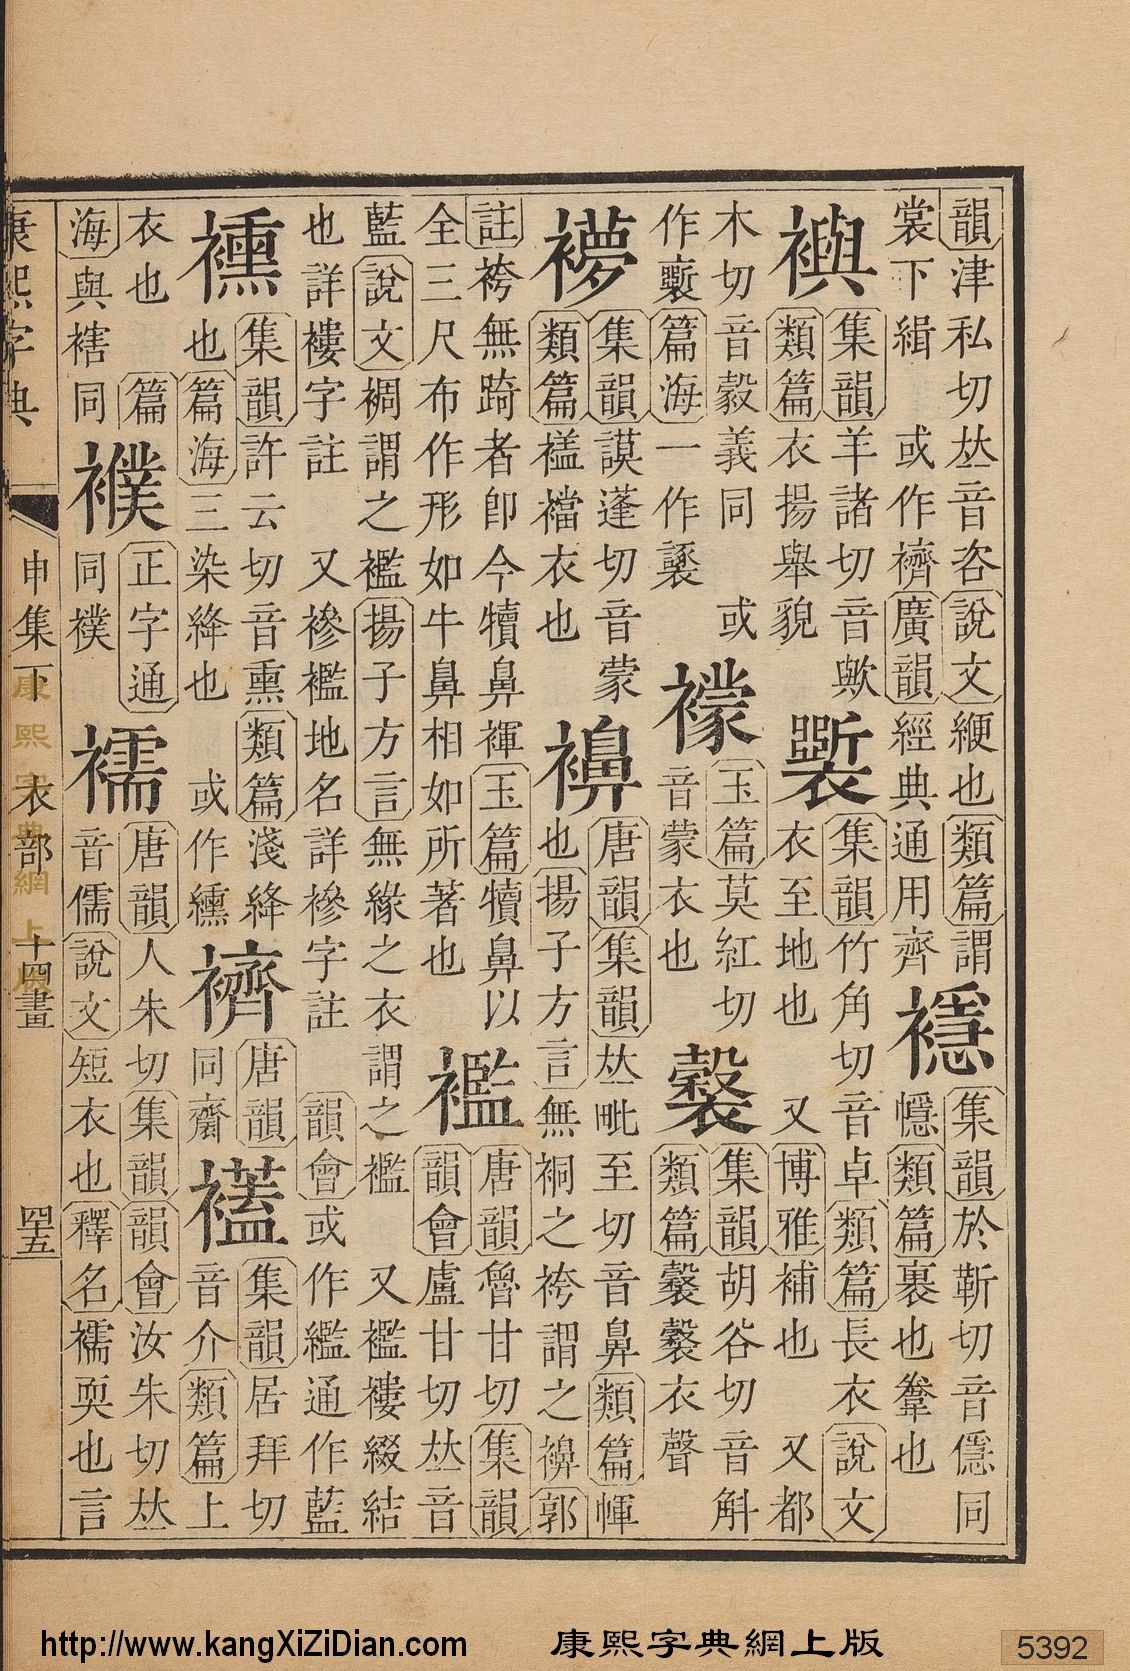 韻津私切𠀤音咨說文緶也類篇謂
裳下緝 或作廣韻經典通用齊
集韻於靳切音隱同
㡥類篇裹也鞶也
集韻羊諸切音歟
類篇衣揚舉貌
集韻竹角切音卓類篇長衣說文
衣至地也 又博雅補也 又都
木切音縠義同 或
作篇海一作
䙩
玉篇莫紅切
音蒙衣也
集韻胡谷切音斛
類篇衣聲
集韻謨蓬切音蒙
類篇襠衣也
襣
唐韻集韻𠀤毗至切音鼻類篇㡓
也揚子方言無之袴謂之襣郭
註袴無踦者卽今犢鼻褌玉篇犢鼻以
全三尺布作形如牛鼻相如所著也
襤
唐韻魯甘切集韻
韻會盧甘切𠀤音
藍說文裯謂之襤揚子方言無緣之衣謂之襤 又襤褸綴結
也詳褸字註 又襂襤地名詳襂字註 韻會或作繿通作藍
集韻許云切音熏類篇淺絳
也篇海三染絳也 或作纁
唐韻
同
集韻居拜切
音介類篇上
衣也 篇
海與同
襥
正字通
同襆
襦
唐韻人朱切集韻韻會汝朱切𠀤
音儒說文短衣也釋名襦耎也言
康熙字典 申集下 衣部 十四畫 四五
康熙字典網上版
http://www.kangXiZiDian.com 康熙字典網上版 5392